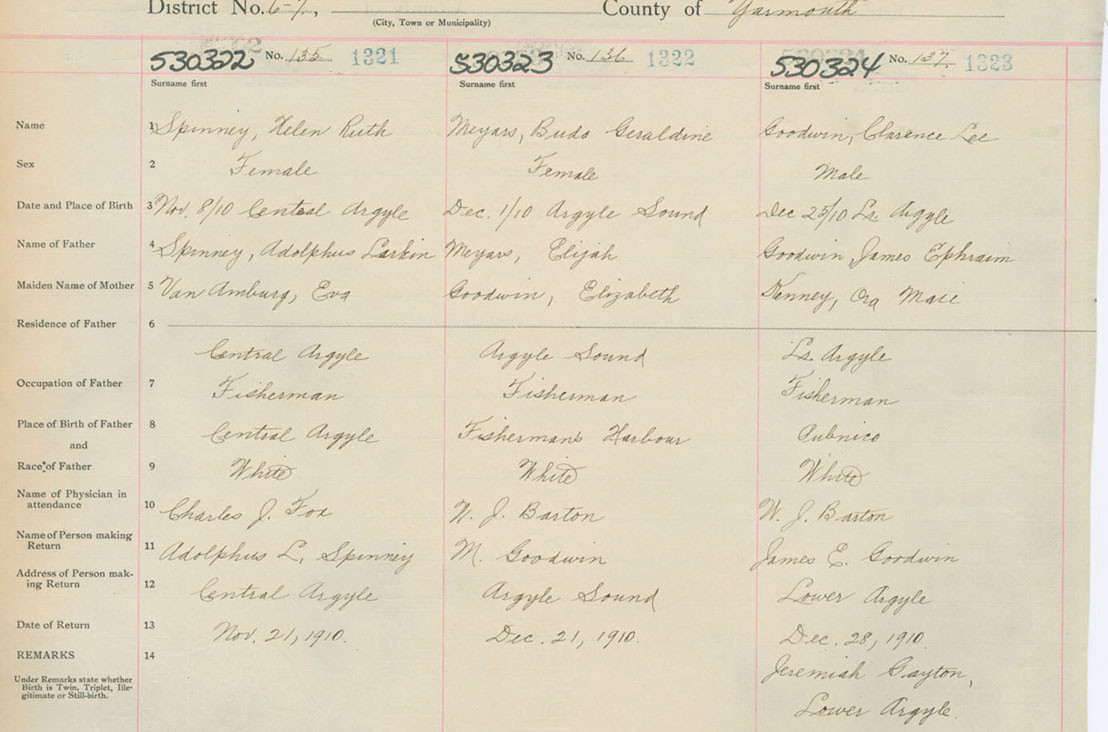 District No. 6-7, County of Yarmouth
(City, Town or Municipality)
530322 No. 135 1321 530323 No. 136 1322 530324 No. 137 1323
Surname first Surname first Surname first
Name 1 Spinney, Helen Ruth Meyars, Buda Geraldine Goodwin, Clarence Lee
Sex 2 Female Female Male
Date and Place of Birth 3 Nov. 8/10 Central Argyle Dec. 1/10 Argyle Sound Dec 25/10 Lr. Argyle
Name of Father 4 Spinney, Adolphus Larkin Meyars, Elijah Goodwin, James Ephraim
Maiden Name of Mother 5 Van Amburg, Eva Goodwin, Elizabeth Kenney, Ora Maie
Residence of Father 6
Central Argyle Argyle Sound Lr. Argyle
Occupation of Father 7 Fisherman Fisherman Fisherman
Place of Birth of Father 8 Central Argyle Fisherman's Harbour Pubnico
and
Race of Father 9 White White White
Name of Physician in
attendance 10 Charles J. Fox W. J. Barton W. J. Barton
Name of Person making
Return 11 Adolphus L. Spinney M. Goodwin James E. Goodwin
Address of Person mak-
ing Return 12 Central Argyle Argyle Sound Lower Argyle
Date of Return 13 Nov. 21, 1910. Dec. 21, 1910. Dec. 28, 1910.
REMARKS 14 Jeremiah Gayton,
Under Remarks state whether
Birth is Twin, Triplet, Ille-
gitimate or Still-birth.
Lower Argyle.